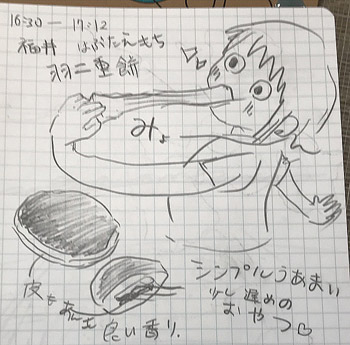 16:30 — 17:12
福井 はぶたえもち
羽二重餅
み。
皮もあんも
良い香り.
シンプルうぁまい
少し遅めの
おやつ